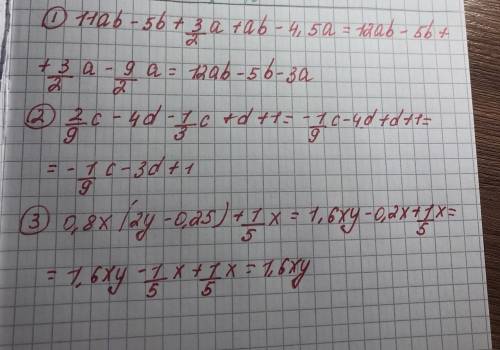 ① 11ab - 5b + 3/2 a + ab - 4,5a = 12ab - 5b +
+ 3/2 a - 9/2 a = 12ab - 5b - 3a
② 2/9 c - 4d - 1/3 c + d + 1 = - 1/9 c - 4d + d + 1 =
= - 1/9 c - 3d + 1
③ 0,8x (2y - 0,25) + 1/5 x = 1,6xy - 0,2x + 1/5 x =
= 1,6xy - 1/5 x + 1/5 x = 1,6xy